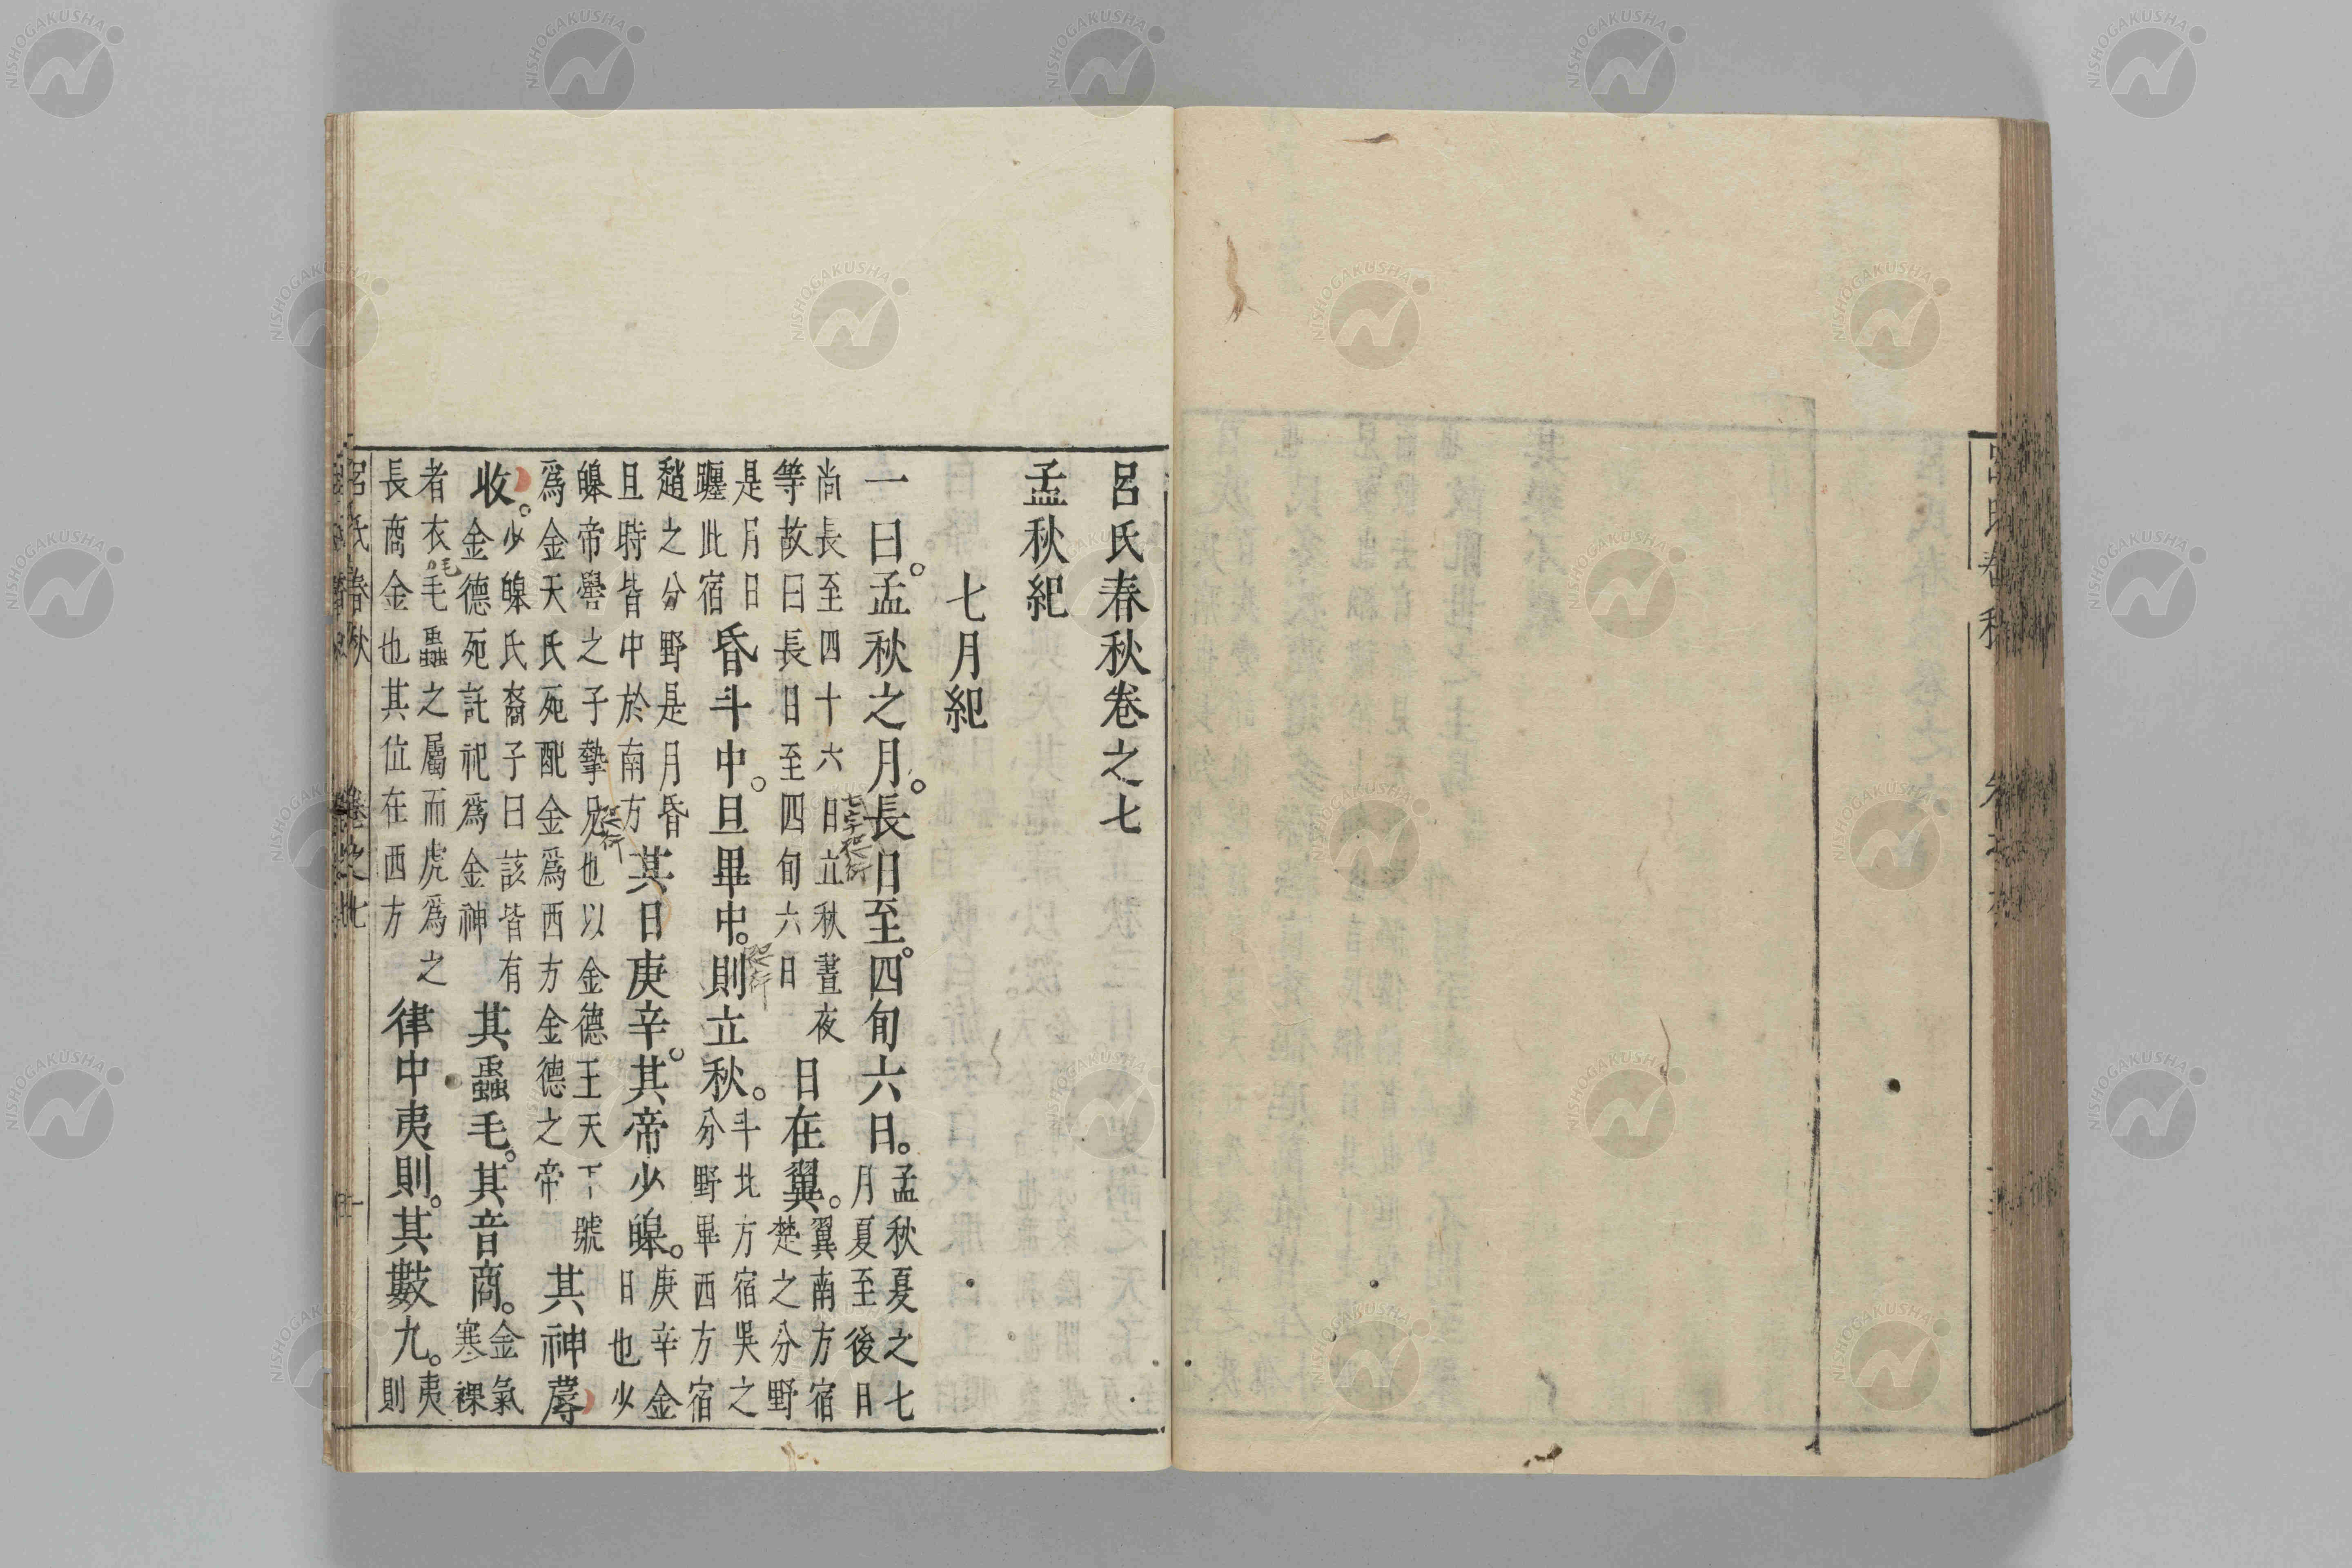 呂氏春秋卷之七
孟秋紀
七月紀
一曰。孟秋之月。長日至。四旬六日。孟秋夏之七月夏至後日
尚長至四十六日立秋晝夜等故曰長日至四旬六日日在翼。翼南方宿楚之分野
是月日躔此宿昏斗中。旦畢中。則立秋。斗北方宿吳之分野畢西方宿
趙之分野是月昏旦時皆中於南方其日庚辛。其帝少皞。庚辛金日也少
皞帝嚳之子摯兄也以金德王天下號爲金天氏死配金爲西方金德之帝其神蓐
收。少皞氏裔子曰該皆有金德死託祀爲金神其蟲毛。其音商。金氣寒裸
者衣毛蟲之屬而虎爲之長商金也其位在西方律中夷則。其數九。夷則
呂氏春秋 卷之七 一
呂氏春秋
NISHOGAKUSHA